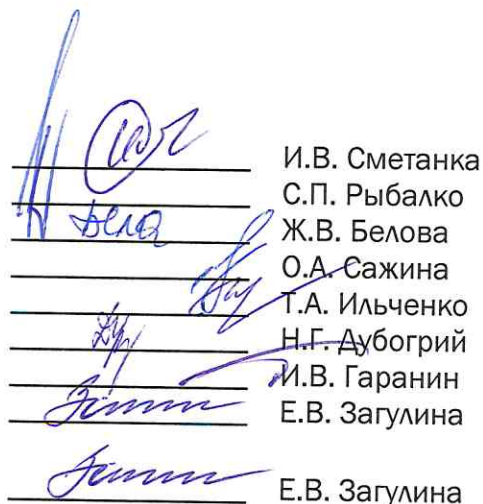 И.В. Сметанка
С.П. Рыбалко
Бела Ж.В. Белова
О.А. Сажина
Т.А. Ильченко
Н.Г. Дубогрий
И.В. Гаранин
Е.В. Загулина
Е.В. Загулина